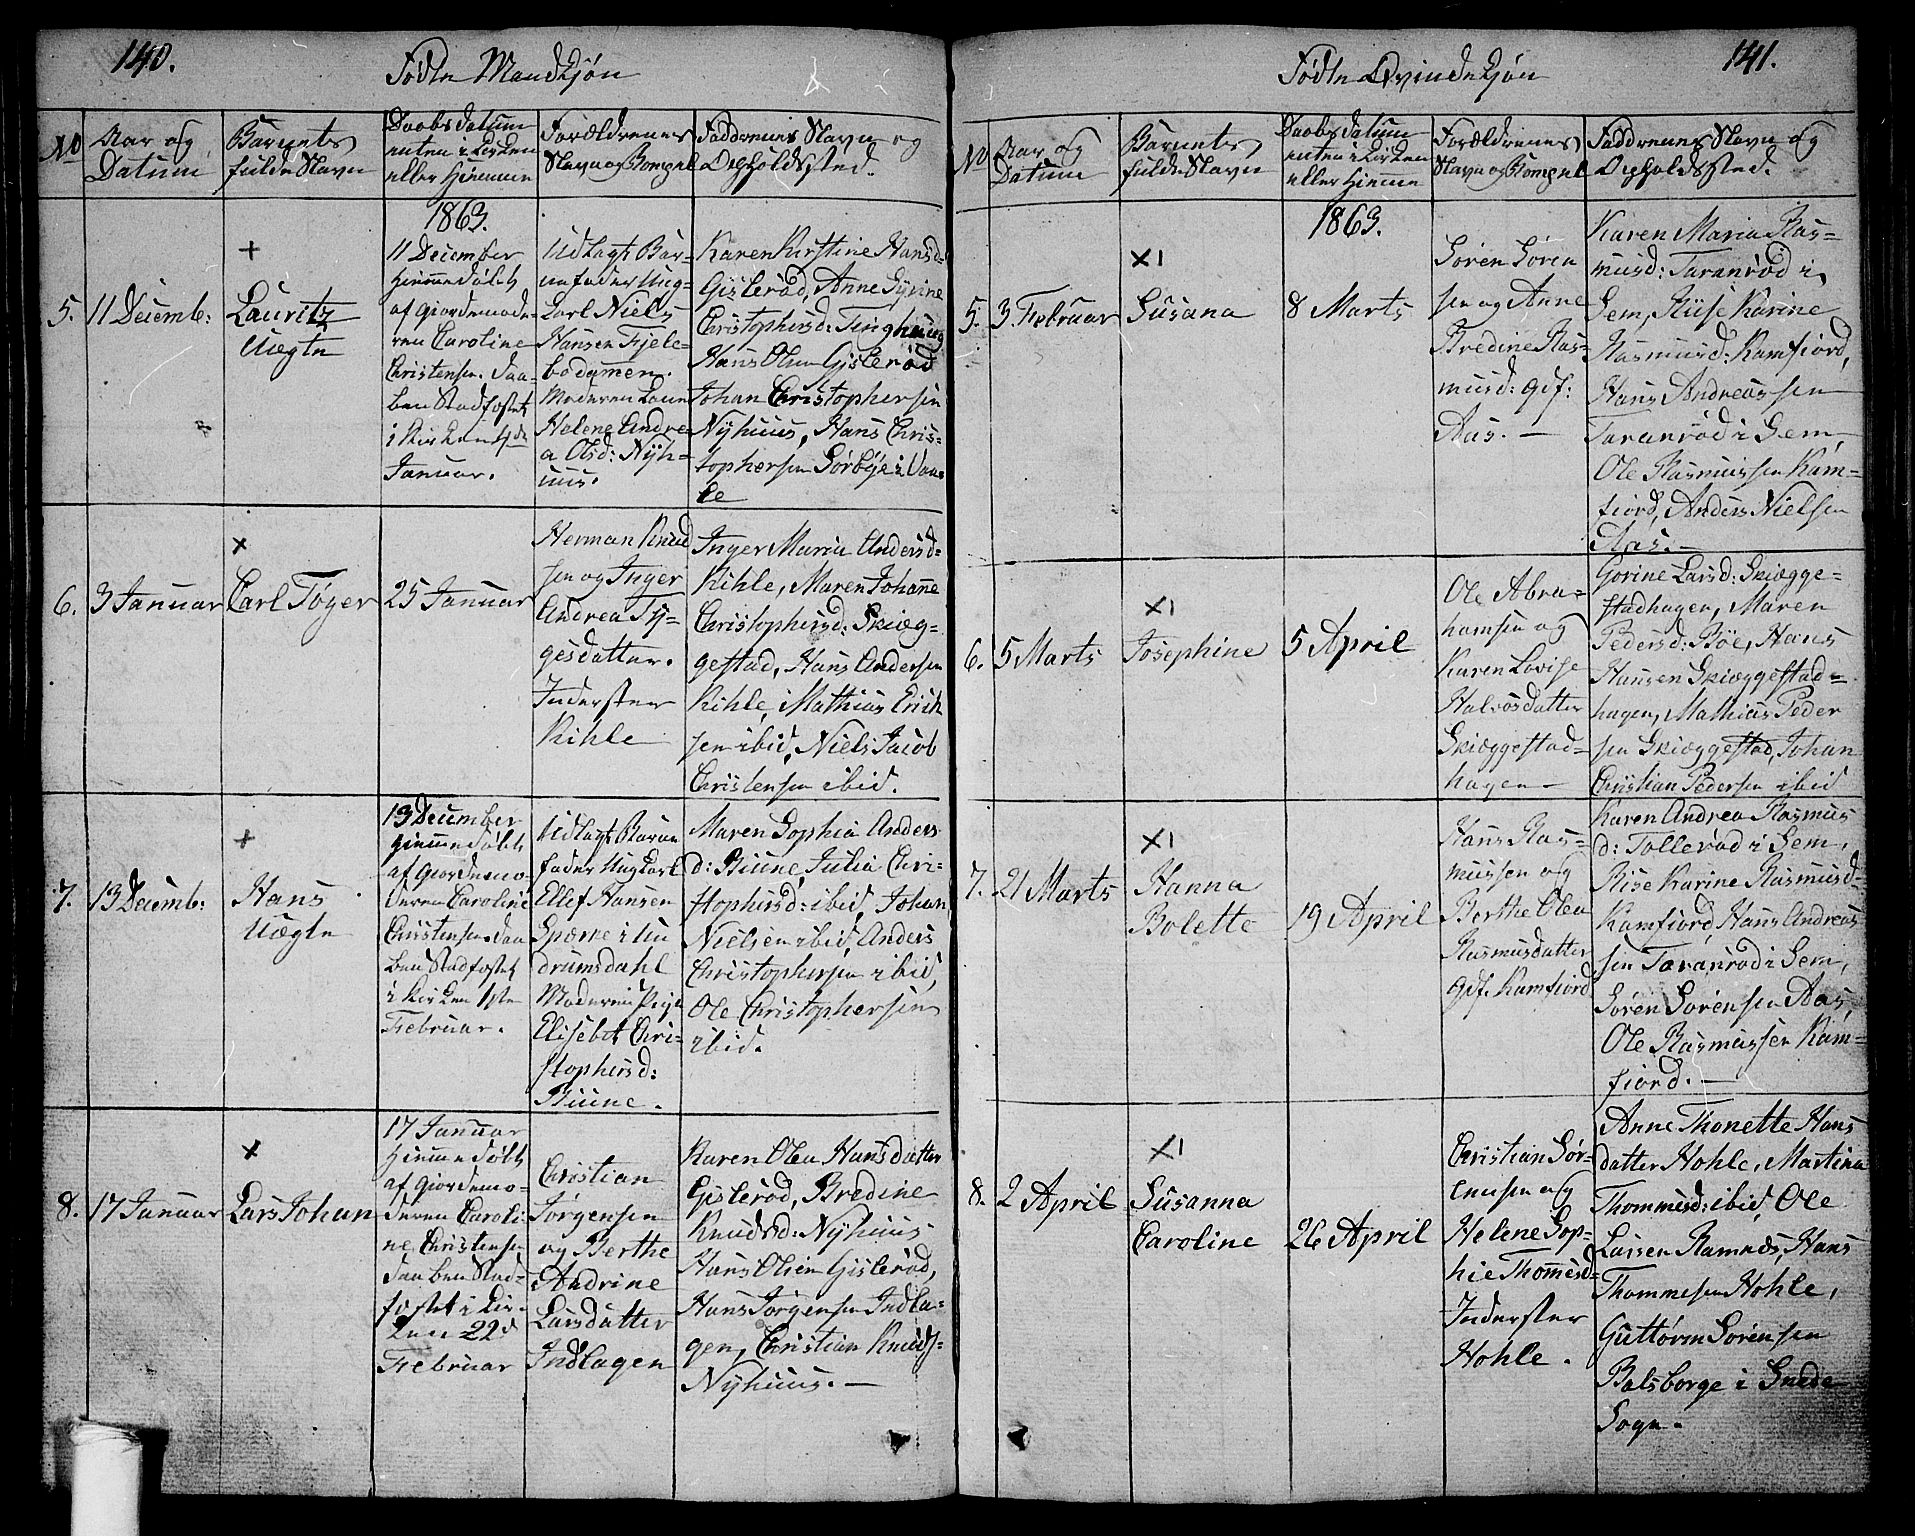 140.
Fødte Mandkjøn
No
Aar og
Datum
Barnets
fulde Navn
Daabsdatum
enten i Kirken
eller Hjemme
Forældrenes
Navn og Bopæl
Faddernes Navn og
Opholdssted.
5.
11 Decemb:
+
Lauritz
Uægte
1863.
11 December
hjemmedøbt
af Gjordemode-
ren Caroline
Christensen. Daa-
ben Stadfæstet
i Kirken 4de
Januar.
Udlagt Bar-
nefader Ung-
karl Niels
Hansen Fjele-
bodamen.
Moderen Lane
Helene Andre-
a Olsd: Nyh-
uus.
Karen Kirstine Hansd-
Gislerød, Anne Gurine
Christophersd: Tinghaug
Hans Olsen Gislerød
Johan Christophersen
Nyhuus, Hans Chris-
tophersen Sørbye i Vaa-
le
6.
3 Januar
x
Carl Tøger
25 Januar
Herman Knud
sen og Inger
Andrea Ty-
gesdatter.
Inderster
Kihle
Inger Maria Andersd-
Kihle, Maren Johanne
Christophersd: Skiæg-
gestad, Hans Andersen
Kihle, Mathias Erich
sen ibid, Niels Jacob
Christensen ibid.
7.
13 Decemb:
+
Hans
Uægte
13 December
hjemmedøbt
af Gjordemo-
deren Caroline
Christensen. Daa
ben Stadfæstet
i Kirken 1ste
Februar.
Udlagt Barne
fader Ungkarl
Ellef Hansen
Sparre i Un
drumsdahl
Moderen Pige
Elisebet Chri-
stophersd:
Biune.
Maren Sophia Anders
d: Biune, Julia Chri-
stophersd: ibid, Johan
Nielsen ibid, Anders
Christophersen ibid,
Ole Christophersen
ibid.
8.
17 Januar
x
Lars Johan
17 Januar
hjemmedøbt
af Gjordemo-
deren Caroli-
ne Christensen
Daaben Stad-
fæstet i Kir-
ken 22d
Februar
Christian
Jørgensen
og Berthe
Andrine
Larsdatter
Indlagen
Karen Olea Hansdatter
Gislerød, Bredine
Knudsd: Nyhuus
Hans Olsen Gislerød,
Hans Jørgensen Indla-
gen, Christian Knuds-
Nyhuus. —
141.
Fødte Qvindekjøn
No
Aar og
Datum
Barnets
fulde Navn
Daabsdatum
enten i Kirken
eller Hjemme
Forældrenes
Navn og Bopæl
Faddernes Navn og
Opholdssted.
5.
3 Februar
x1
Susana
1863.
8 Marts
Søren Søren
sen og Anne
Bredine Ras-
musd: gdf:
Aas. —
Karen Maria Ras-
musd: Taranrød i
Sem, Rise Karine
Rasmusd: Kamfiord,
Hans Andreassen
Taranrød i Sem,
Ole Rasmussen Kam-
fiord, Anders Nielsen
Aas. —
6.
5 Marts
x1
Josephine
5 April
Ole Abra-
hamsen og
Karen Lovise
Halvosdatter
Skiæggestad-
hagen —
Gorine Larsd: Skiægge-
stadhagen, Maren
Pedersd: Bøe, Hans
Hansen Skiæggestad-
hagen, Mathias Peder
sen Skiæggestad, Johan
Christian Pedersen ibid
7.
21 Marts
x1
Hanna
Bolette
19 April
Hans Ras-
mussen og
Berthe Olea
Rasmusdatter
gdf. Kamfiord
Karen Andrea Rasmus
d: Tollerød i Sem,
Rise Karine Rasmusd-
Kamfiord, Hans Andreas
sen Taranrød i Sem,
Søren Sørensen Aas,
Ole Rasmussen Kam-
fiord. —
8.
2 April
x1
Susanna
Caroline
26 April
Christian Sør-
ensen og
Helene Sop-
hie Thomesd-
Inderster
Hohle.
Anne Thonette Hans
datter Hohle, Martina
Thommesd: ibid, Ole
Larsen Ramnæs, Hans
Thommesen Hohle,
Guttorm Sørensen
Balsborge i Snede
Sogn.